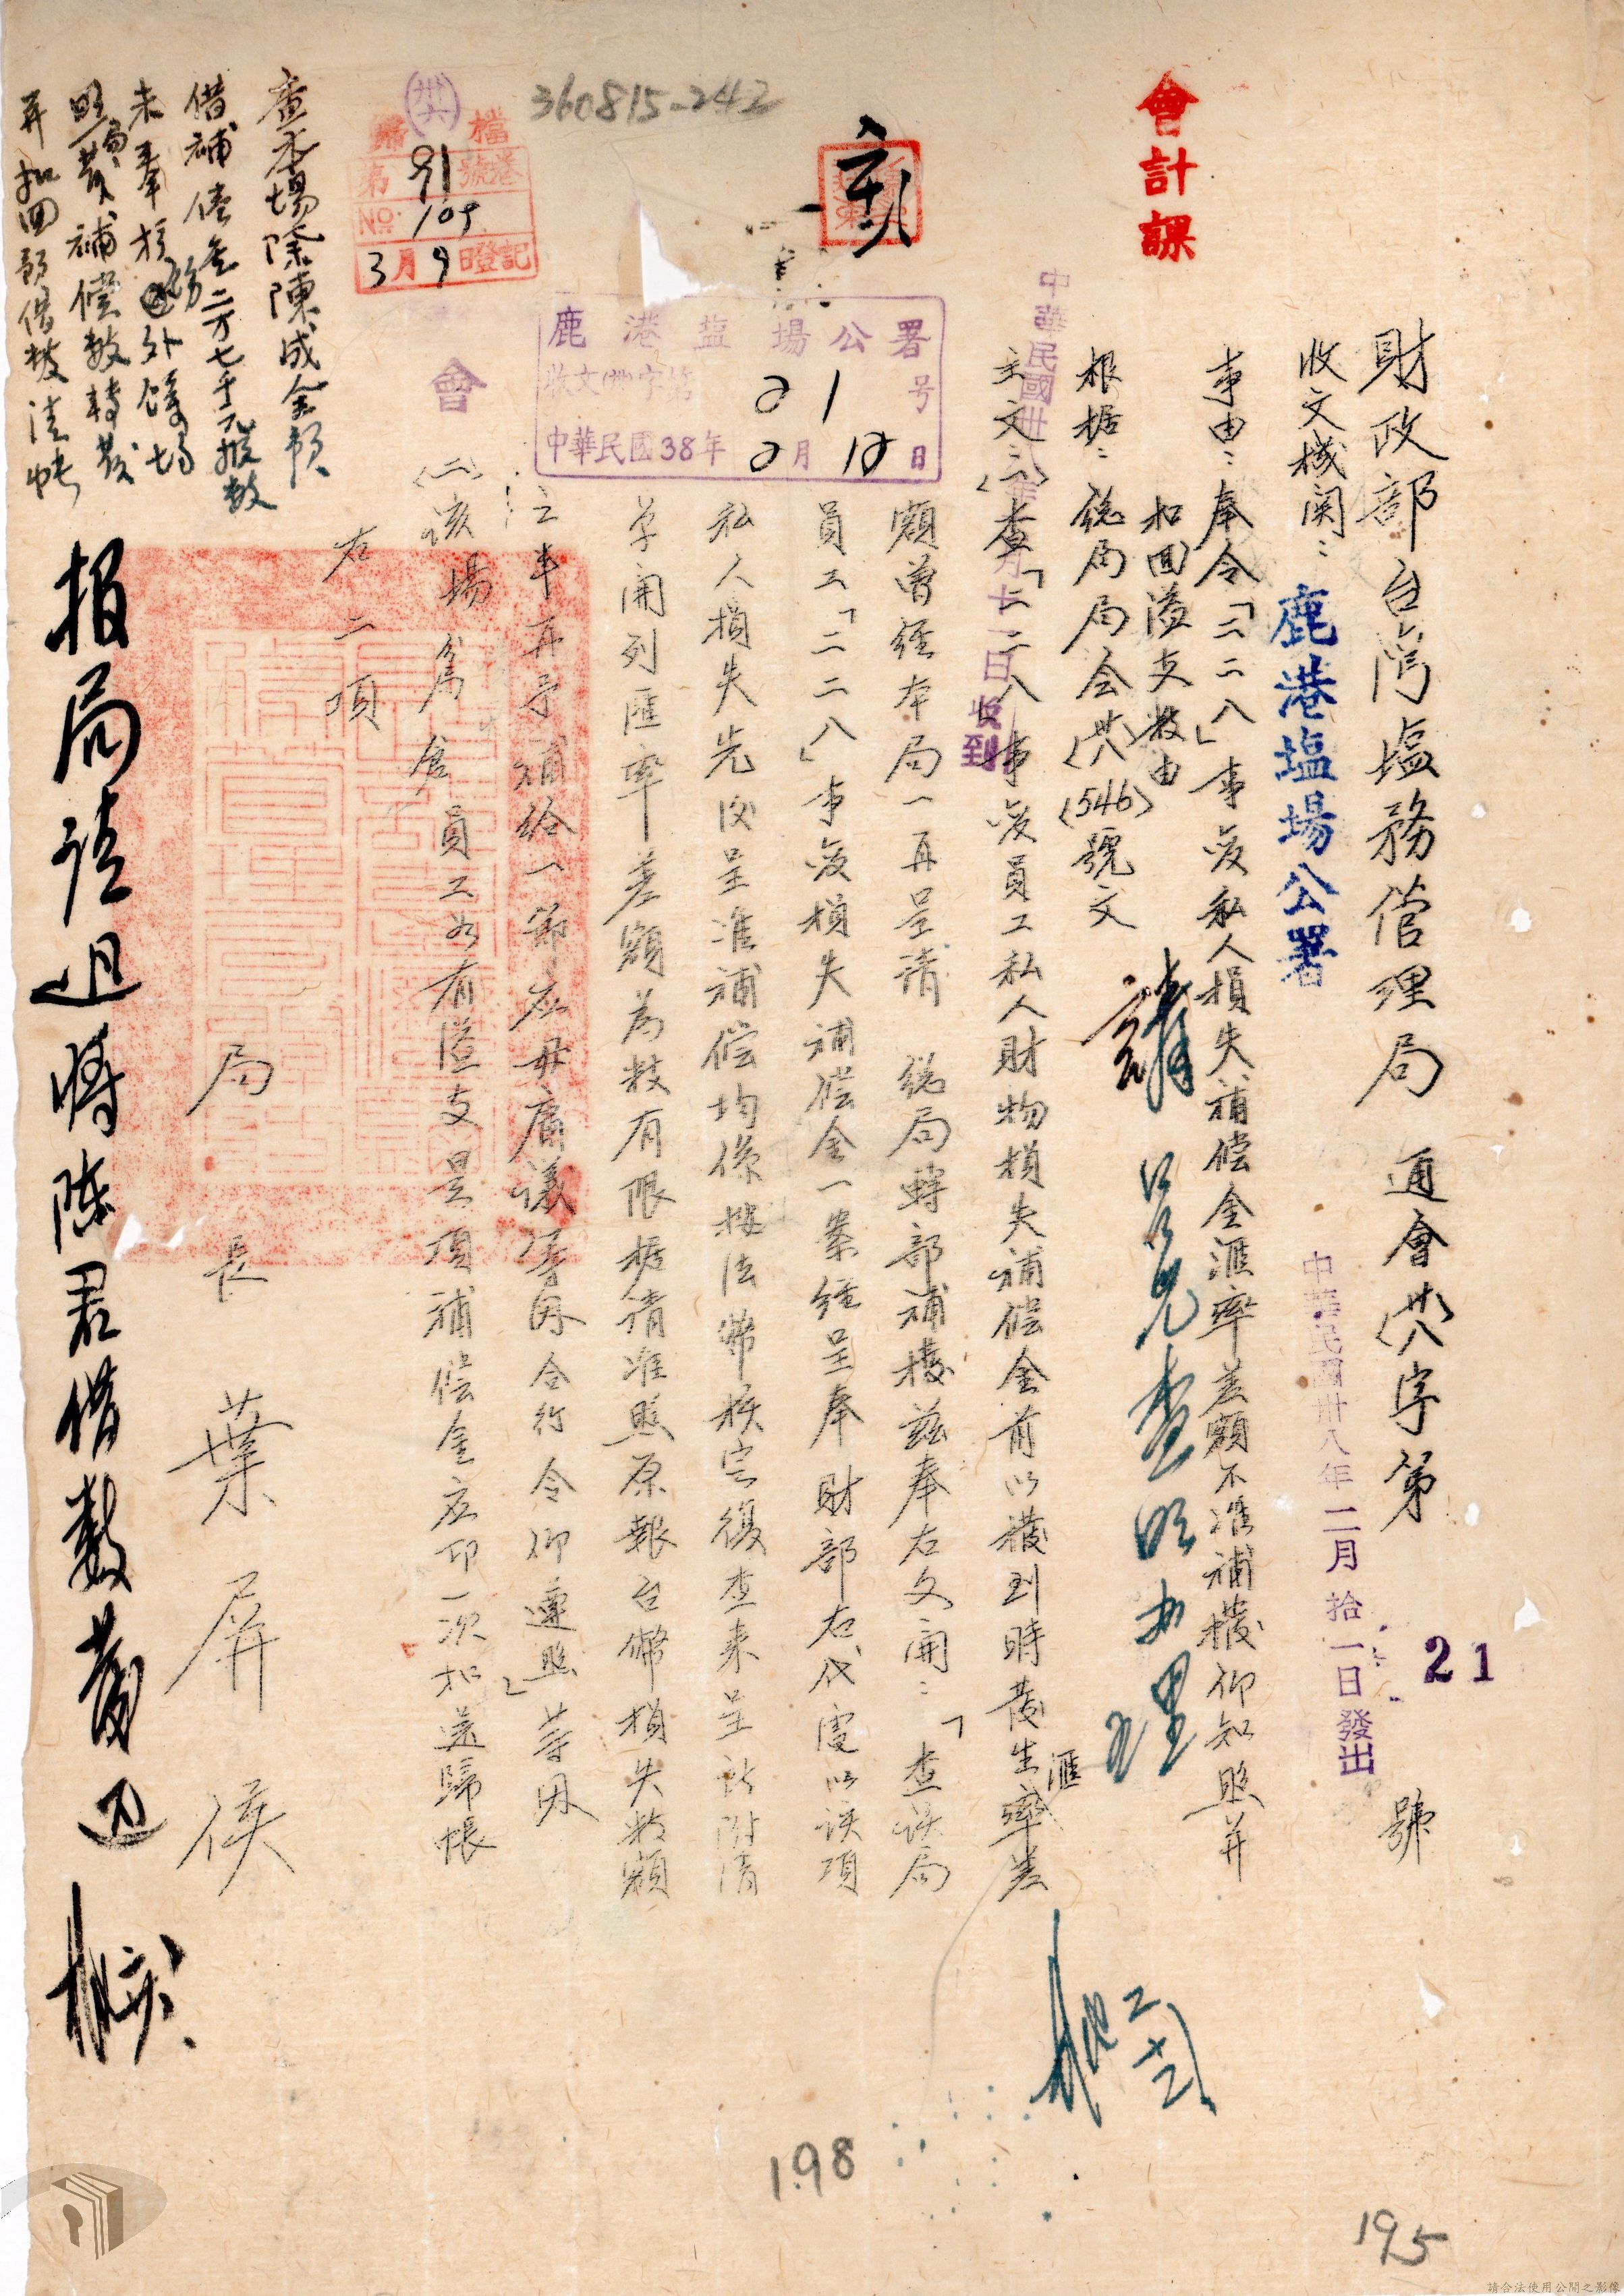 會計課
財政部台灣塩務管理局 通會(卅八)字第 21 號
中華民國卅八年二月拾一日發出
收文機関：鹿港塩場公署
事由：奉令「二二八」事变私人損失補偿金滙率差額不准補撥仰知照并
扣回溢支数由
根据：總局局会(卅八)(546)號文
請
兄查明办理
二十二
中華民國卅八年 月十一日收到
主文：(一)查「二二八」事变員工私人財物損失補偿金前以撥到時發生滙率差
額曾經本局一再呈請 總局轉部補撥茲奉右文開：「查該局
員工「二二八」事变損失補偿金一案經呈奉 財部右代電以該項
私人損失先後呈准補偿均係按法幣核定復查来呈所附清
单開列匯率差額為数有限据請准照原報台幣損失数額
之半再予補給一節应毋庸議等因合行令仰遵照」等因
(二)該場寮倉員工如有溢支是項補偿金应即一次扣送歸帳
右二項
局長 葉屏侯
鹿港塩場公署
收文(卅八)字第 21 号
中華民國38年 2月 12日
會
360815-242
歸檔
第 91 號
No. 109
3月9日登記
查本場除陳成金預
借補偿金二万七千元报数
未奉核發外餘均
照局發補偿数轉發
并扣回預借数清帳
报局請迅將陈君借数發还
198
195
請合法使用公開之影像